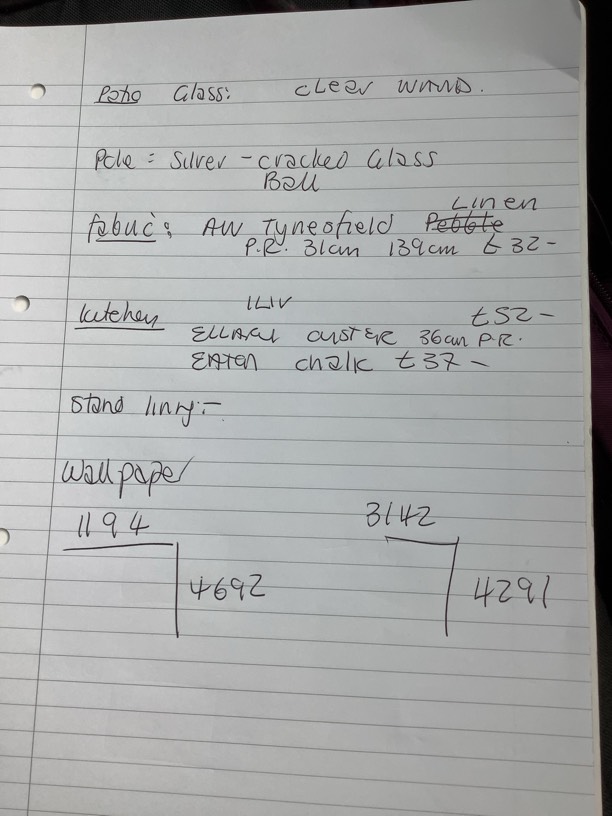 Patio Glass: Clear WAND.
Pole = Silver - cracked Glass
Ball
Linen
fabric: AW Tyneofield Pebble
P.R. 31cm 139cm £32-
Kitchen ILIV £52-
OYSTER 36cm P.R.
EATON chalk £37-
Stand lining:-
Wallpaper
1194 3142
4692 4291